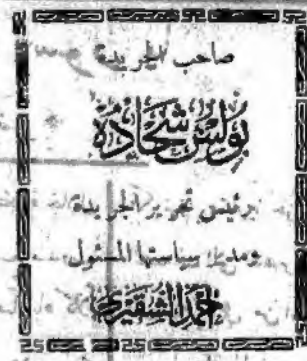 صاحب الجريدة
بولس شحادة
رئيس تحرير الجريدة
ومدير سياستها المسئول
احمد الشقيري